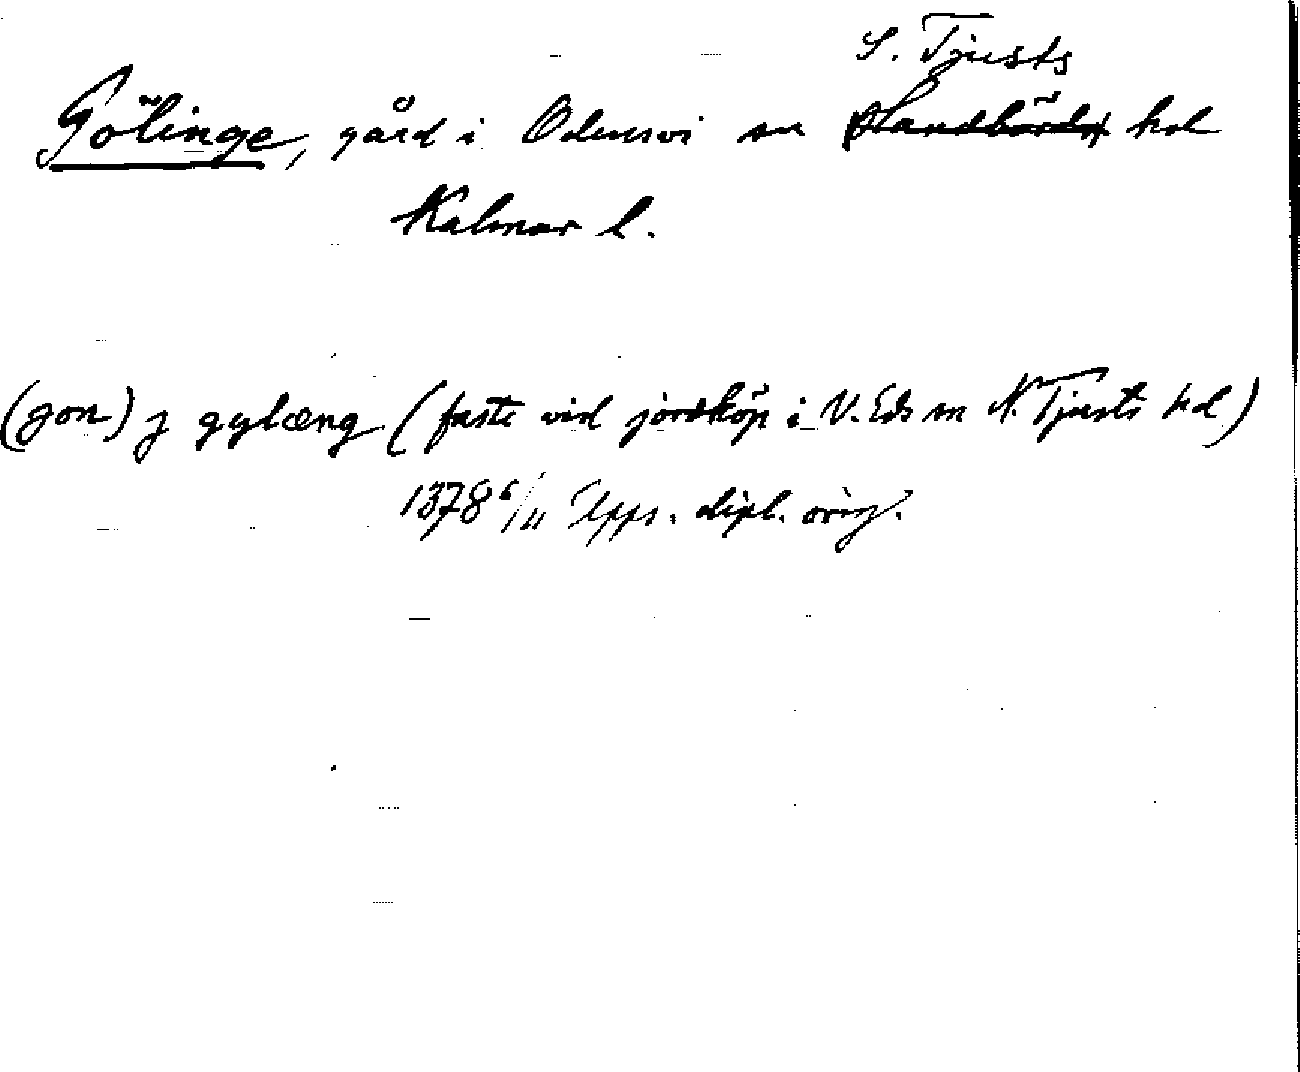 S. Tjusts
Gölinge, gård i Odensvi sn Handbörds hd
Kalmar l.
(gon) j gylæng (faste vid jordköp i V. Eds sn N. Tjusts hd)
1378 6/11 Upps. dipl. orig.